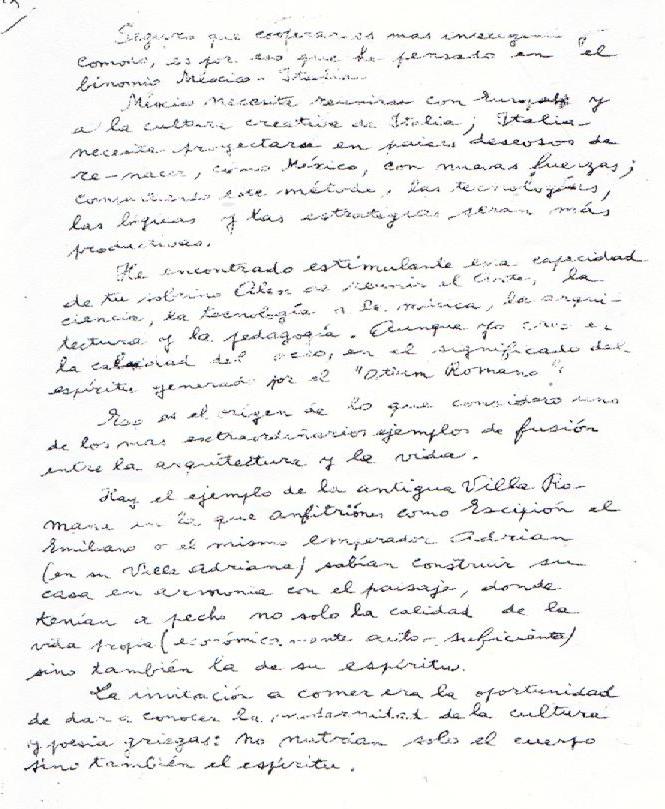 Seguro que cooperar es mas
como, es por eso que he pensado en "el
binomio México - Italia.
México necesita reunirse con Europa y
a la cultura creativa de Italia; Italia
necesita proyectarse en paises deseosos de
re-nacer, como México, con nuevas fuerzas;
este método, las tecnologías,
las lógicas y las estrategias seran más
productivas.
He encontrado estimulante esa capacidad
de tu sobrino Alex de reunir el arte, la
ciencia, la tecnología a la música, la arqui-
tectura y la pedagogía. Aunque yo creo en
la calidad del ocio, en el significado del
espíritu generado por el "Otium Romano".
Eso es el origen de lo que considero uno
de los mas extraordinarios ejemplos de fusión
entre la arquitectura y la vida.
Hay el ejemplo de la antigua Villa Ro-
mana en la que anfitriónes como Escipión el
Emiliano o el mismo emperador Adrian
(en su Villa Adriana) sabían construir su
casa en armonia con el paisaje, donde
tenían a pecho no solo la calidad de la
vida propia (económicamente auto-suficiente)
sino también la de su espíritu.
La invitación a comer era la oportunidad
de dar a conocer la modernidad de la cultura
y poesia griegas: no nutrían solo el cuerpo
sino también el espíritu.